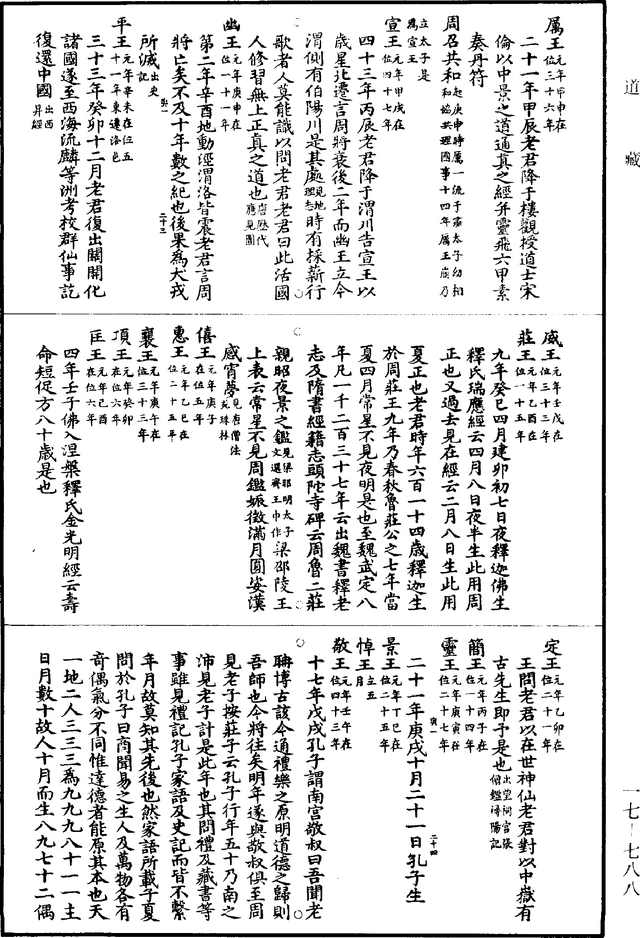 道藏
厲王元年甲申在位三十六年
二十一年甲辰老君降于樓觀授道士宋
倫以中景之道通真之經并靈飛六甲素
奏丹符
周召共和起庚申時厲一流于彘太子幼相和協共理國事十四年厲王崩乃立太子是為宣王
宣王元年甲戌在位四十七年
四十三年丙辰老君降于渭川告宣王以
歲星北遷言周將衰後二年而幽王立今
渭側有伯陽川是其處現地理志時有採薪行
歌者人莫能識以問老君老君曰此活國
人修習無上正真之道也唐歷代應見圖
幽王元年庚申在位十一年
第二年辛酉地動涇渭洛皆震老君言周
將亡矣不及十年數之紀也後果為犬戎
所滅出史記
典一
二十三
平王元年辛未在位五十一年東遷洛邑
三十三年癸卯十二月老君復出關開化
諸國遂至西海流麟等洲考校群仙事訖
復還中國出西昇經
威王元年壬戌在位三十三年
莊王元年乙酉在位一十五年
九年癸巳四月建卯初七日夜釋迦佛生
釋氏瑞應經云四月八日夜半生此用周
正也又過去見在經云二月八日生此用
夏正也老君時年六百一十四歲釋迦生
於周莊王九年乃春秋魯莊公之七年當
夏四月常星不見夜明是也至魏武定八
年凡一千二百三十七年云出魏書釋老
志及隋書經籍志頭陀寺碑云周魯二莊
親昭夜景之鑑見梁昭明太子文選齊王中作梁邵陵王
上表云常星不見周鑑娠徵滿月圓姿漢
感宵夢見唐僧法苑珠林
僖王元年庚子在位五年
惠王元年乙巳在位二十五年
襄王元年庚午在位三十三年
頂王元年癸卯在位六年
匡王元年己酉在位六年
四年壬子佛入涅槃釋氏金光明經云壽
命短促方八十歲是也
定王元年乙卯在位二十一年
王問老君以在世神仙老君對以中嶽有
古先生即予是也出望祠官張俯鑑濟陽記
簡王元年丙子在位一十四年
靈王元年庚寅在位二十七年
二十一年庚戌十月二十一日孔子生
典一
二十四
景王元年丁巳在位二十五年
悼王立五月
敬王元年壬午在位四十三年
十七年戊戌孔子謂南宮敬叔曰吾聞老
聃博古該今通禮樂之原明道德之歸則
吾師也今將往矣明年遂與敬叔俱至周
見老子按莊子云孔子行年五十乃南之
沛見老子計是此年也其問禮及藏書等
事雖見禮記孔子家語及史記而皆不繫
年月故莫知其先後也然家語所載子夏
問於孔子曰商聞易之生人及萬物各有
奇偶氣分不同惟達德者能原其本也天
一地二人三三三為九九九八十一一主
日月數十故人十月而生八九七十二偶
一七—七八八